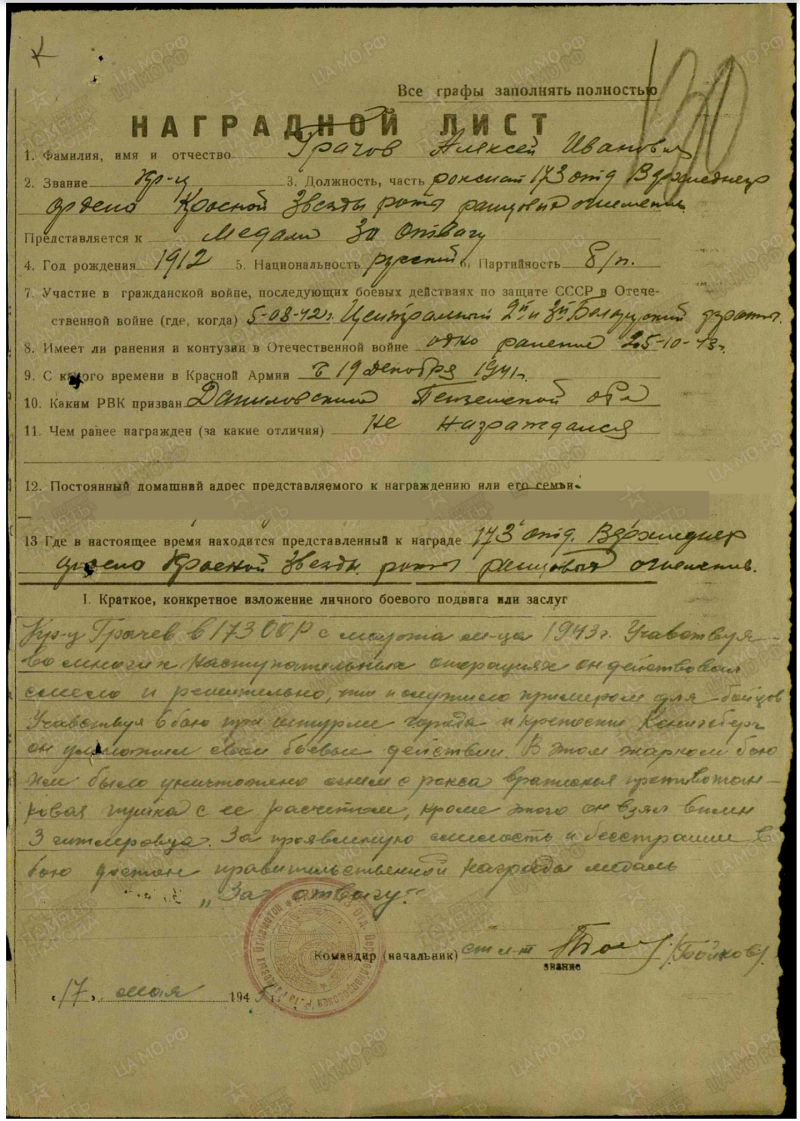 К
Все графы заполнять полностью
130
НАГРАДНОЙ ЛИСТ
1. Фамилия, имя и отчество Грачов Алексей Иванович
2. Звание Кр-ц 3. Должность, часть роксист 173 отд Верхнеднепр
ордена Красной Звезды роты ранцевых огнеметов
Представляется к Медали За Отвагу
4. Год рождения 1912 5. Национальность русский 6. Партийность б/п.
7. Участие в гражданской войне, последующих боевых действиях по защите СССР в Отече-
ственной войне (где, когда) 5-08-42г. Центральный 2й и 3й Белорусский фронты.
8. Имеет ли ранения и контузии в Отечественной войне одно ранение 25-10-43г.
9. С какого времени в Красной Армии с 19 декабря 1941г.
10. Каким РВК призван Даниловский Пензенской обл
11. Чем ранее награжден (за какие отличия) Не награждался
12. Постоянный домашний адрес представляемого к награждению или его семьи
13 Где в настоящее время находится представленный к награде 173 отд. Верхнеднепр
ордена Красной Звезды роты ранцевых огнеметов.
I. Краткое, конкретное изложение личного боевого подвига или заслуг
Кр-ц Грачев в 173 ООР с марта м-ца 1943г. Участвуя
во многих наступательных операциях он действовал
смело и решительно, чем и служило примером для бойцов
Участвуя в бою при штурме города и крепости Кенигсберг
он умножил свои боевые действии. В этом жарком бою
им было уничтожено огнем с рокса вражеская противотан-
ковая пушка с ее расчетом, кроме этого он взял в плен
3 гитлеровца. За проявленную смелость и бесстрашие в
бою достоин правительственной награды медаль
„За отвагу"
Командир (начальник) ст л-т /Бойков/
звание
„17" мая 1945